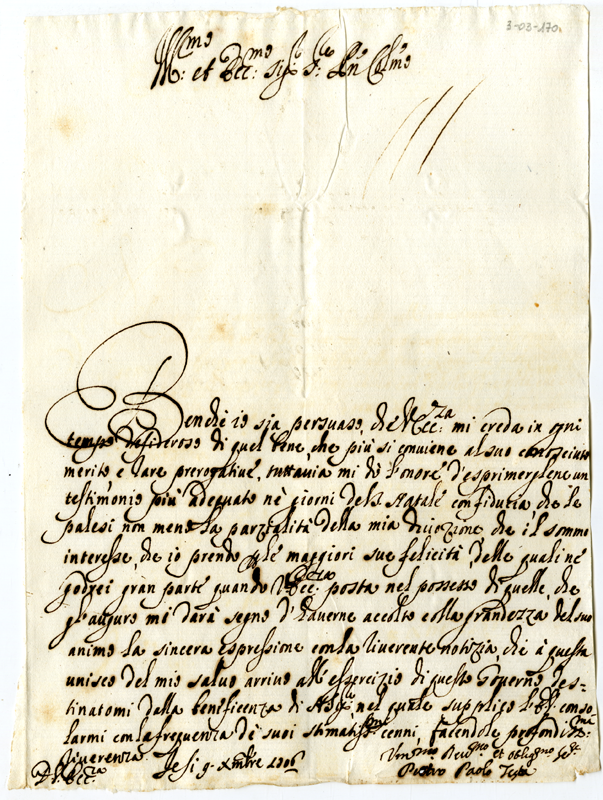 3-03-170
Ill:mo et Ecc:mo Sig:
Benche io sia persuaso, che V: Ecc:za mi creda in ogni
tempo desideroso di quel bene, che più si conuiene al suo conosciuto
merito e rare prerogatiue, tuttauia mi dò l'onore d'esprimerglene un
testimonio più adequato ne' giorni del S. Natale confiducia che le
palesi non meno la parzialità della mia diuozione che il sommo
interesse, che io prendo le maggiori sue felicità, delle quali ne
godrei gran parte quando V. Ecc:za posta nel possesso di quelle, che
gl'auguro mi darà segno d'hauerne accolto colla grandezza del suo
animo la sincera espressione conla riuerente notizia, che à questa
unisco del mio saluo arriuo all'essercizio di questo Gouerno des=
tinatomi dalla beneficenza di nel quale supplico conso
larmi conla frequenza de' suoi stimatiss:mi cenni, facendole profondiss:ma
riuerenza. Jesi 9. Xmbre 1706
D. V. Ecc:za
Um:mo Deu:mo et Oblig:mo Se:
Pietro Paolo Testa